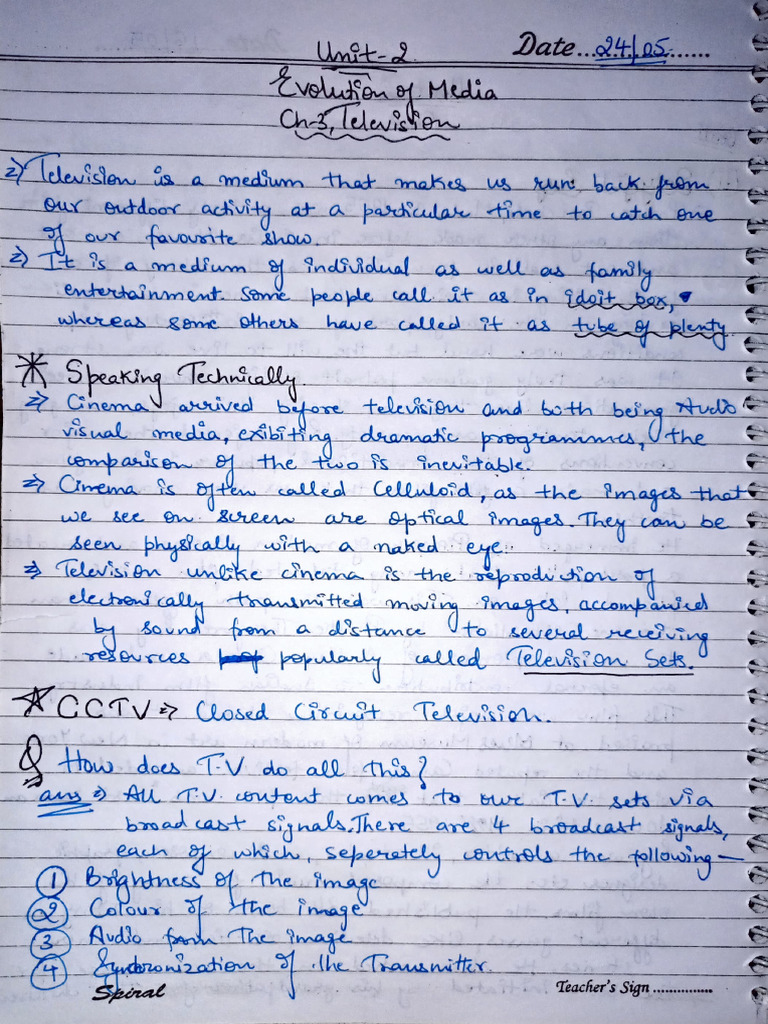 Unit-2
Date...24/05......
Evolution of Media
Ch-3, Television
⇒ Television is a medium that makes us run back from
our outdoor activity at a particular time to catch one
of our favourite show.
⇒ It is a medium of individual as well as family
entertainment. Some people call it as in idoit box,
whereas some others have called it as tube of plenty
* Speaking Technically
⇒ Cinema arrived before television and both being Audio
visual media, exibiting dramatic programmes, the
comparison of the two is inevitable.
⇒ Cinema is often called Celluloid, as the images that
we see on screen are optical images. They can be
seen physically with a naked eye.
⇒ Television unlike cinema is the reproduction of
electronically transmitted moving images, accompanied
by sound from a distance to several receiving
resources popularly called Television Sets.
☆ CCTV ⇒ Closed Circuit Television.
Q How does T.V do all this?
ans ⇒ All T.V. content comes to our T.V sets via
broadcast signals. There are 4 broadcast signals,
each of which, seperately controls the following—
① Brightness of the image
② Colour of the image
③ Audio from The image
④ Synchronization of the Transmitter.
Spiral
Teacher's Sign ...............